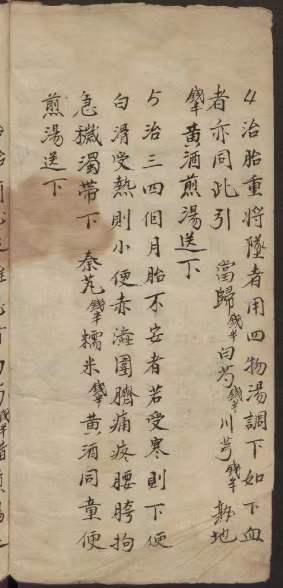 4治胎重將墜者用四物湯調下如下血
者亦同此引 當歸錢半白芍錢半川芎錢半熟地
錢半黄酒煎湯送下
5治三四個月胎不安者若受寒則下便
白滑受熱則小便赤澁圍臍痛疼腰胯拘
急穢濁帶下 秦艽錢半糯米錢半黄酒同童便
煎湯送下